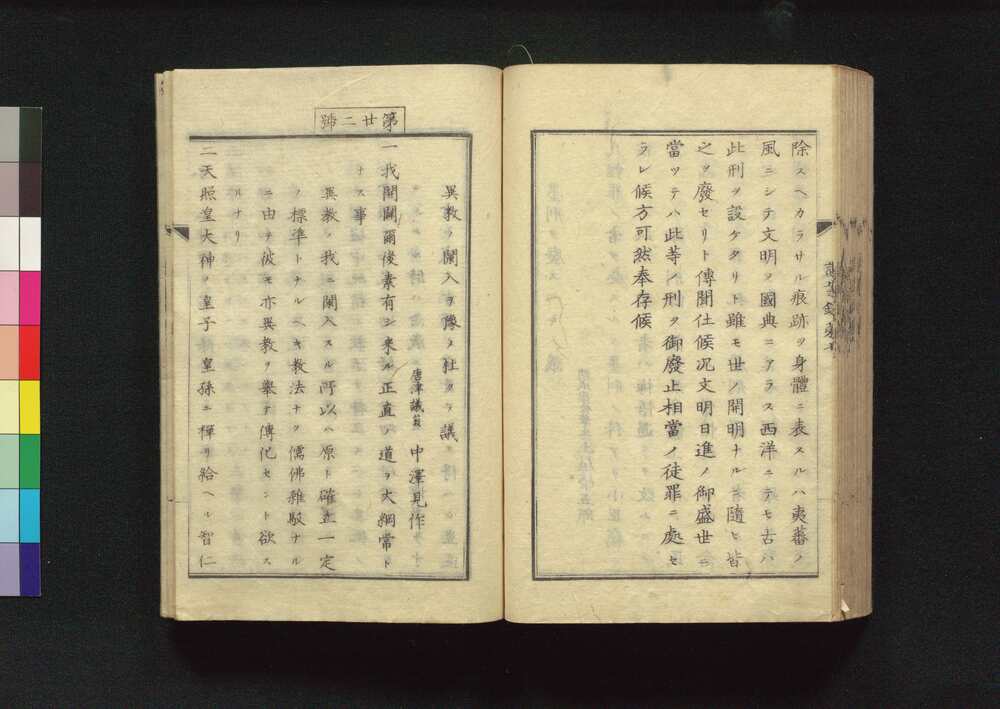 除スヘカラサル痕跡ヲ身體ニ表スルハ夷蕃ノ
風ニシテ文明ノ國典ニアラス西洋ニテモ古ハ
此刑ヲ設ケタリト雖モ世ノ開明ナルニ隨ヒ皆
之ヲ廢セリト傳聞仕候况文明日進ノ御盛世ニ
當ツテハ此等ノ刑ヲ御廢止相當ノ徒罪ニ處セ
ラレ候方可然奉存候
第廿二號
異教ノ闌入ヲ豫メ杜クヘ議
唐津議員 中澤見作
一我開闢爾後素有シ来ル正直ノ道ヲ大綱常ト
ナス事
異教ノ我ニ闌入スル所以ハ原ト確立一定
ノ標準トナルヘキ教法ナク儒佛雑駁ナル
ニ由テ彼モ亦異教ヲ擧テ傳化セント欲ス
ルナリ
二天照皇大神ノ皇子皇孫ニ禪リ給ヘル智仁